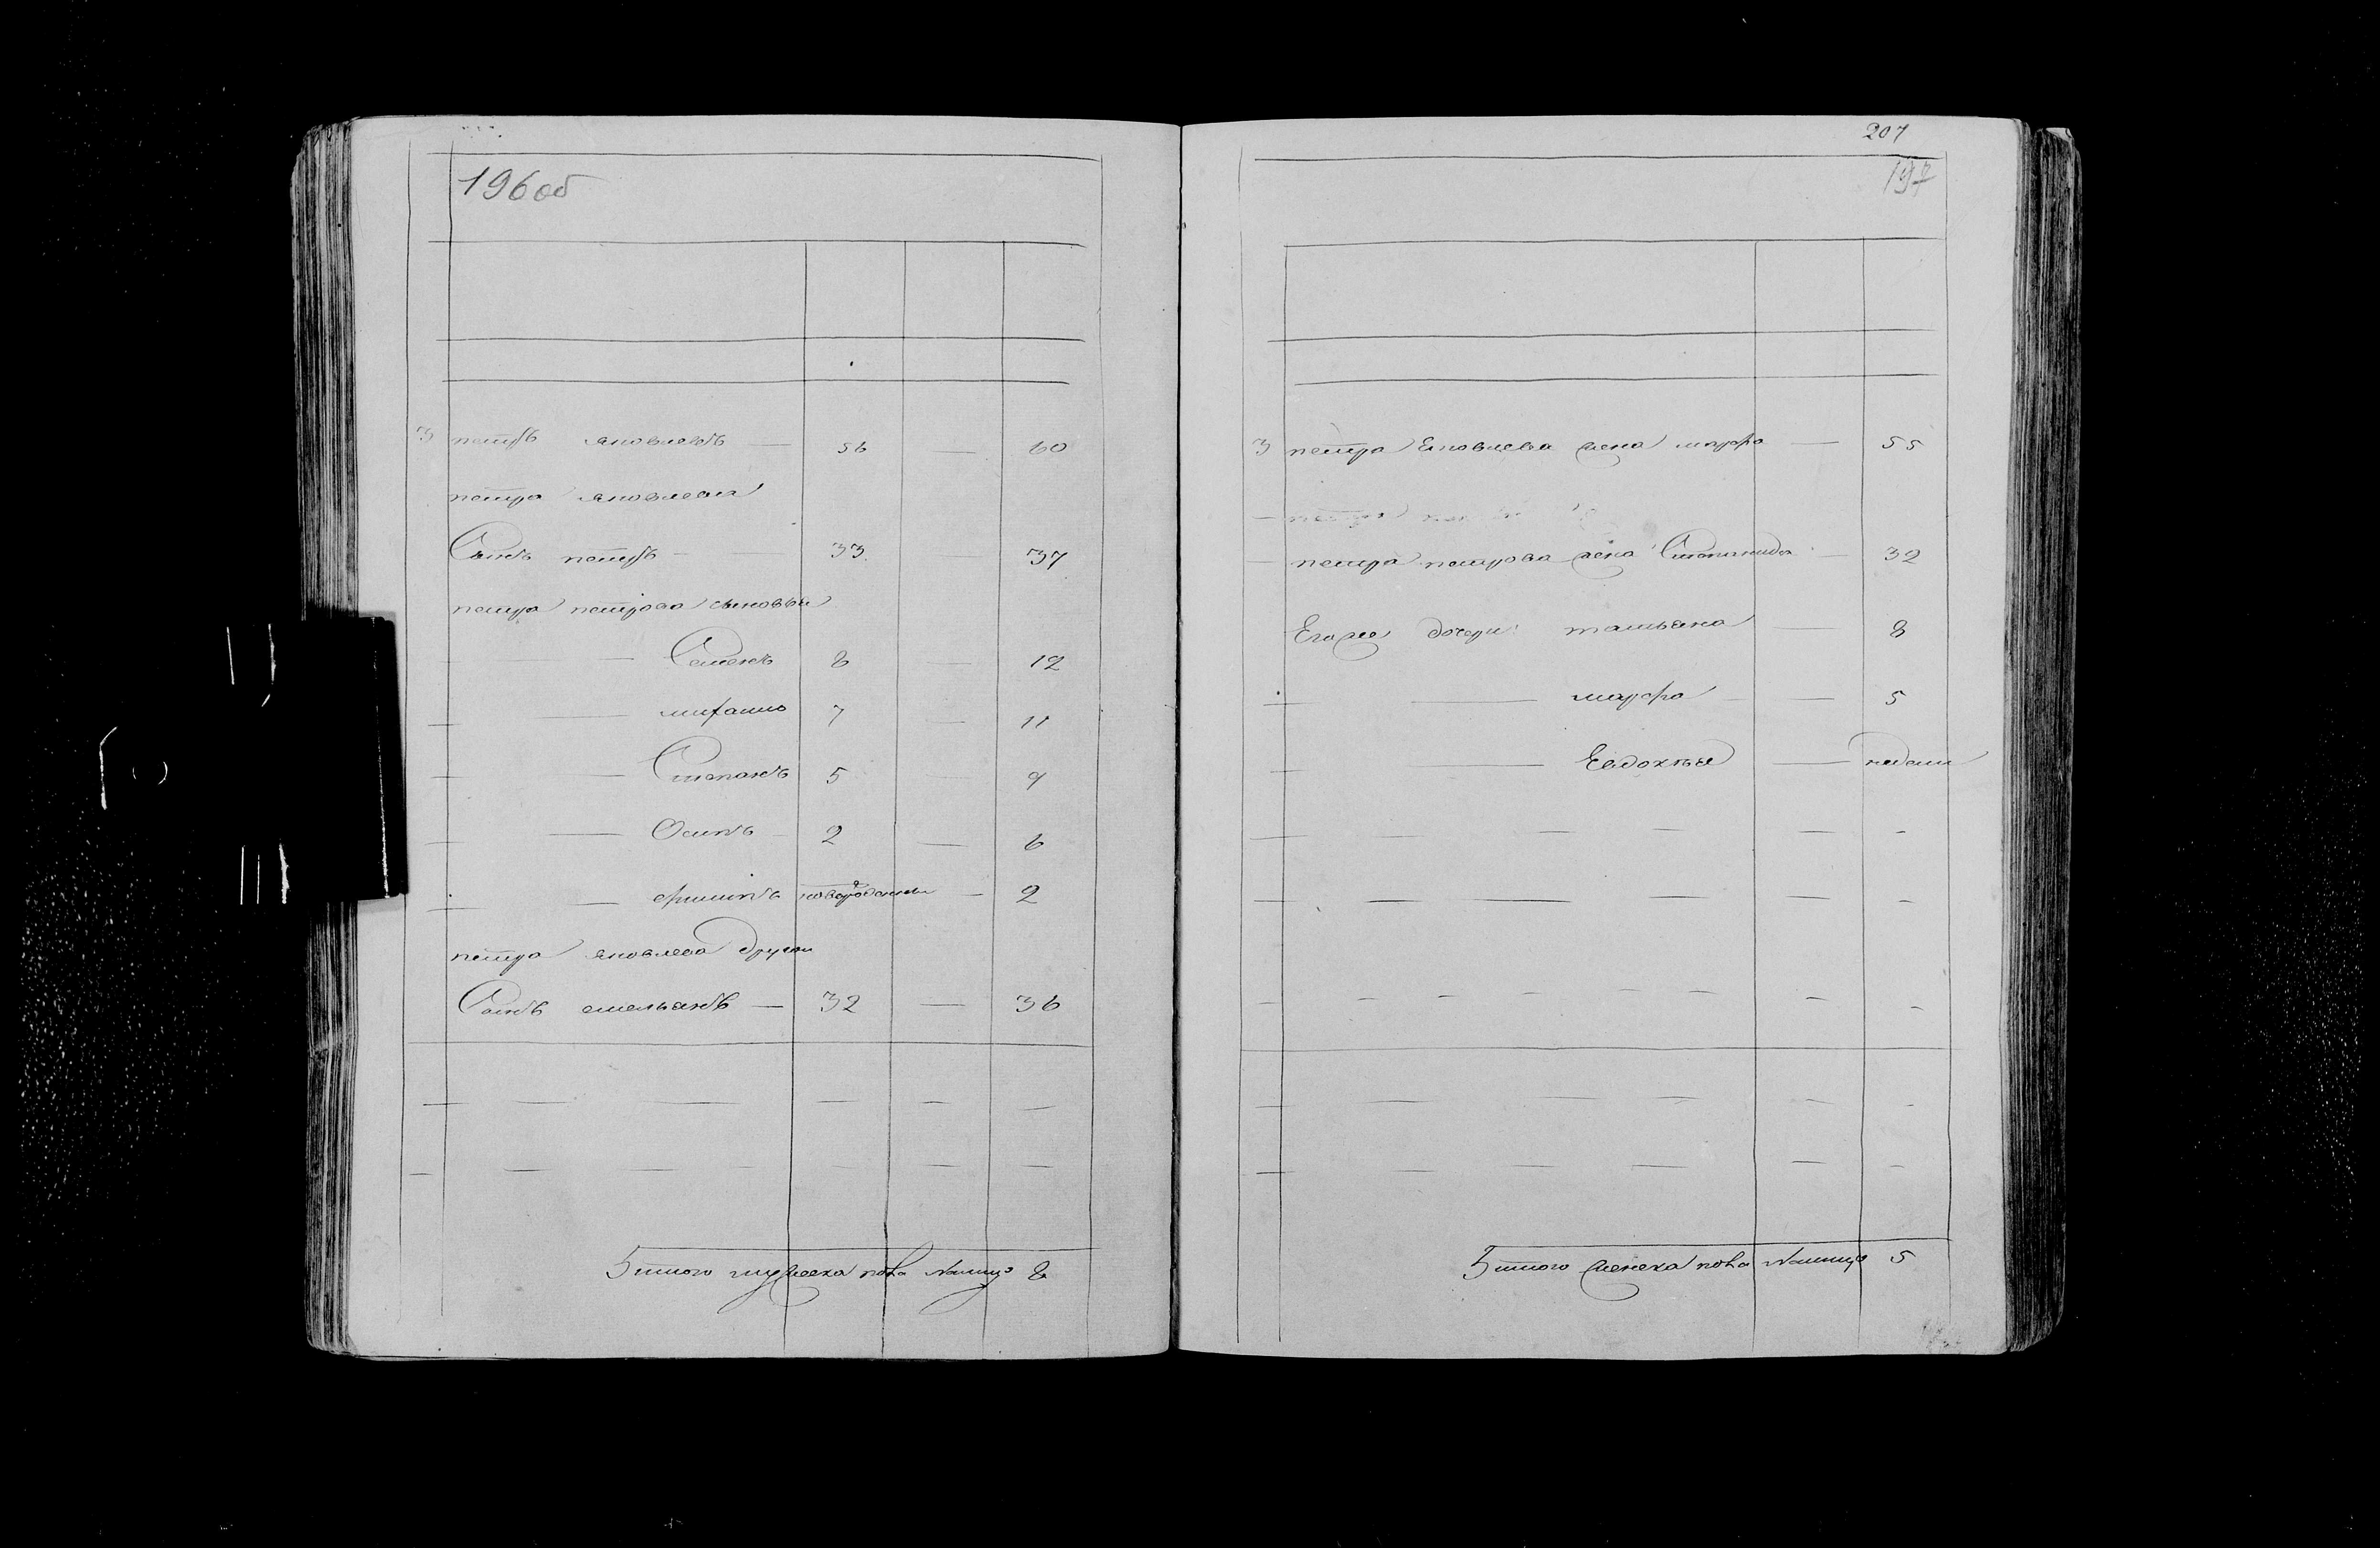 196 об
3 петръ яковлевъ — 56 — 60
петра яковлева
Сынъ петръ — — 33 37
петра петрова сыновьи
— — Семенъ 8 — 12
— — михаило 7 — 11
— — Степанъ 5 9
— — Осипъ 2 — 6
— — филипъ новорожденны — 2
петра яковлева другой
Сынъ емельянъ — 32 — 36
— — — — — —
— — — — — — —
Итого мужеска пола налицо 8
207
197
3 петра Яковлева жена марфа — 55
— петра петрова жена Степанида — 32
Его же дочери: татьяна — 8
— — марфа — — 5
— — Евдокъя — недели
— — — — — -
— — — — — -
— — — — — — — -
— — — — — -
— — — — — -
Итого женска пола налицо 5